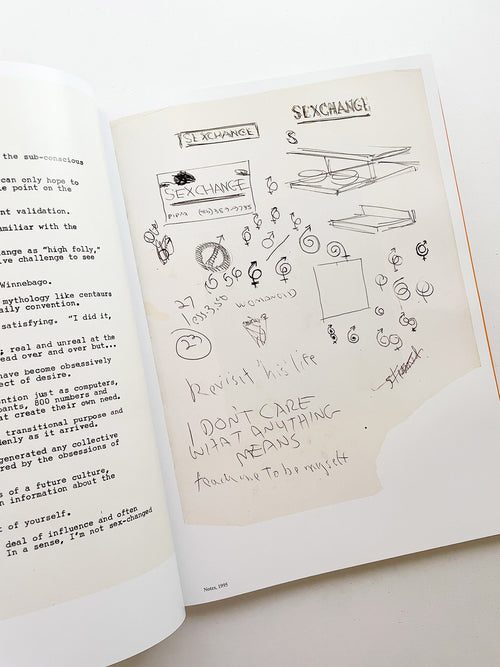 the sub-conscious
can only hope to
e point on the
nt validation.
miliar with the
ange as "high folly,"
ive challenge to see
Winnebago.
mythology like centaurs
aily convention.
satisfying. "I did it,
; real and unreal at the
ead over and over but...
have become obsessively
ect of desire.
ention just as computers,
pants, 800 numbers and
at create their own need.
transitional purpose and
denly as it arrived.
generated any collective
red by the obsessions of
s of a future culture,
n information about the
t of yourself.
deal of influence and often
In a sense, I'm not sex-changed
SEXCHANGE
SEXCHANGE
S
SEXCHANGE
27
23
Revisit his life
I DON'T CARE
WHAT ANYTHING
MEANS
teach me to be myself
Notes, 1995